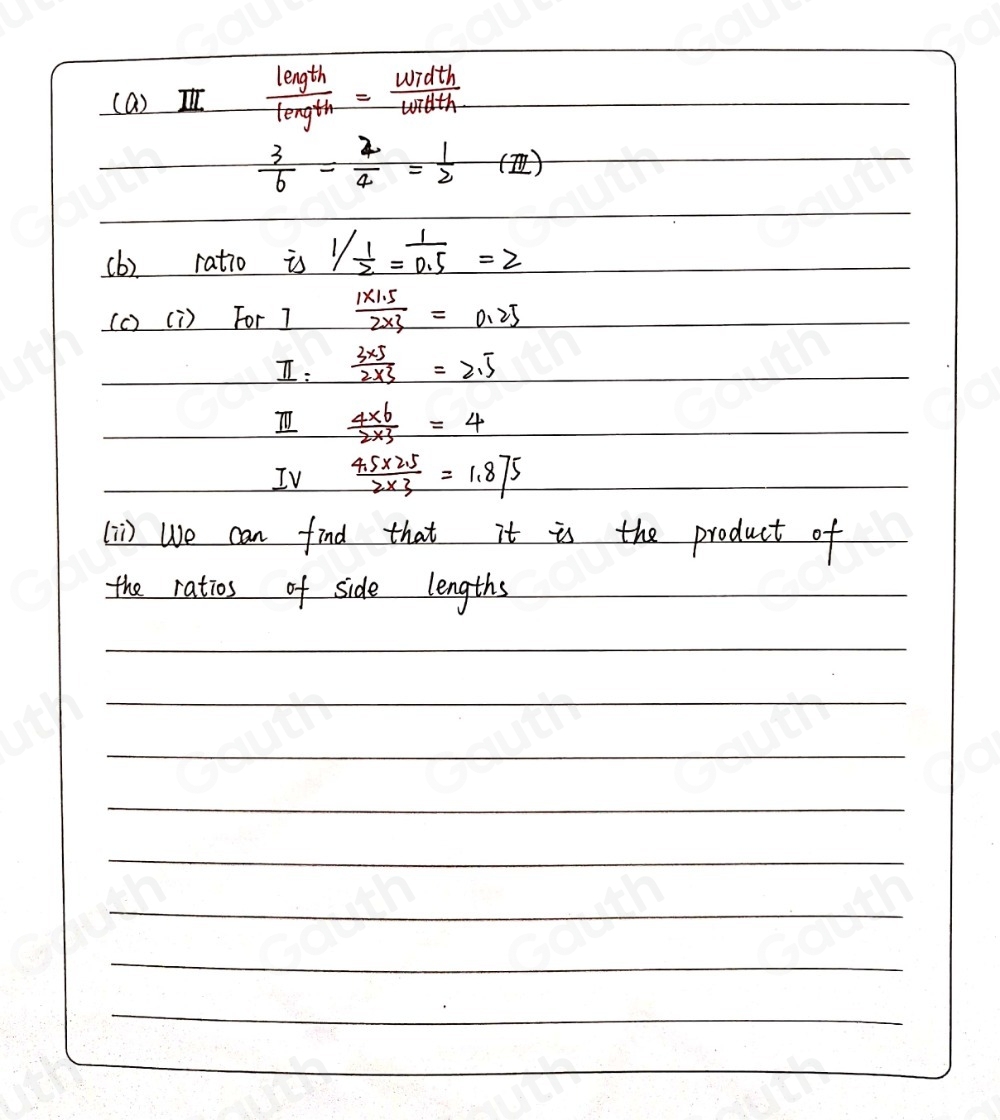 (a) III length/length = width/width
3/6 = 2/4 = 1/2 (III)
(b) ratio is 1/ 1/2 = 1/0.5 = 2
(c) (i) For I 1×1.5/2×3 = 0.25
II: 3×5/2×3 = 2.5
III 4×6/2×3 = 4
IV 4.5×2.5/2×3 = 1.875
(ii) We can find that it is the product of
the ratios of side lengths